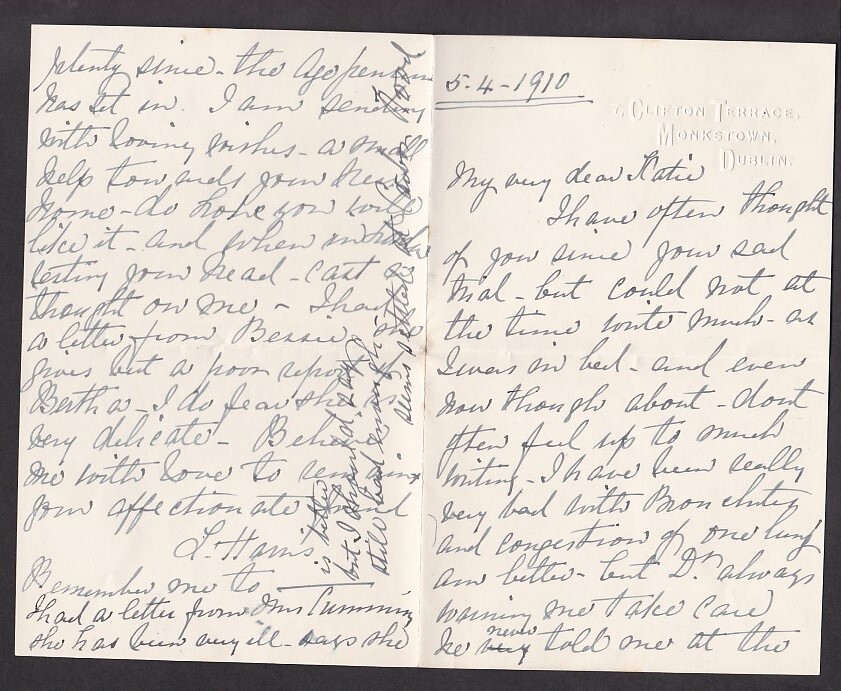 5-4-1910
7, CLIFTON TERRACE,
MONKSTOWN,
DUBLIN.
My very dear Katie
I have often thought
of you since your sad
trial - but could not at
the time write much - as
I was in bed - and even
now though about - dont
often feel up to much
writing - I have been really
very bad with Bronchitis
and congestion of one lung
am better - but Dr. always
warning me take care
he never told me at the
plenty since - the
has set in. I am sending
with loving wishes - a small
help towards your new
home - do hope you will
like it - and when
resting your head - cast a
thought on me - I had
a letter from Bessie she
gives but a poor report of
Bertha - I do fear she is
very delicate - Believe
me with love to remain
your affectionate friend
L. Harris
Remember me to
I had a letter from Mrs Cumming
she has been very ill - says she
is better
but I should say
still bad enough
seems settled